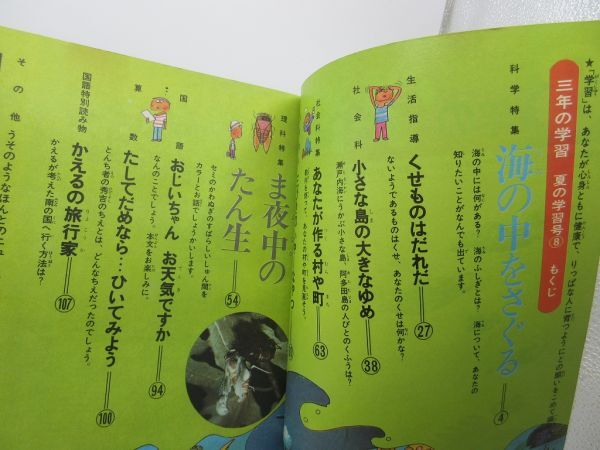 ★「学習」は、あなたが心身ともに健康で、りっぱな人に育つようにとの願いをこめて編
三年の学習 夏の学習号⑧ もくじ
科学特集
海の中をさぐる
④
海の中には何がある? 海のふしぎとは?
海について、あなたの
知りたいことがなんでも出ています。
生活指導
くせものはだれだ
㉗
ないようであるものはくせ、あなたのくせは何かな?
社会科
小さな島の大きなゆめ
㊳
瀬戸内海にうかぶ小さな島、阿多田島の人びとのくふうは?
社会科特集
あなたが作る村や町
63
理科特集
ま夜中の
たん生
54
セミのかわぬぎのすばらしいしゅん間を
カラーとお話でしょうかいします。
国語
おじいちゃん お天気ですか
94
なんのことでしょう。本文をお楽しみに。
算数
たしてだめなら‥ひいてみよう
100
とんち者の秀吉のちえとは、どんなちえだったのでしょう。
国語特別読み物
かえるの旅行家
107
かえるが考えた南の国へ行く方法は?
その他
うそのようなほんとのニュ